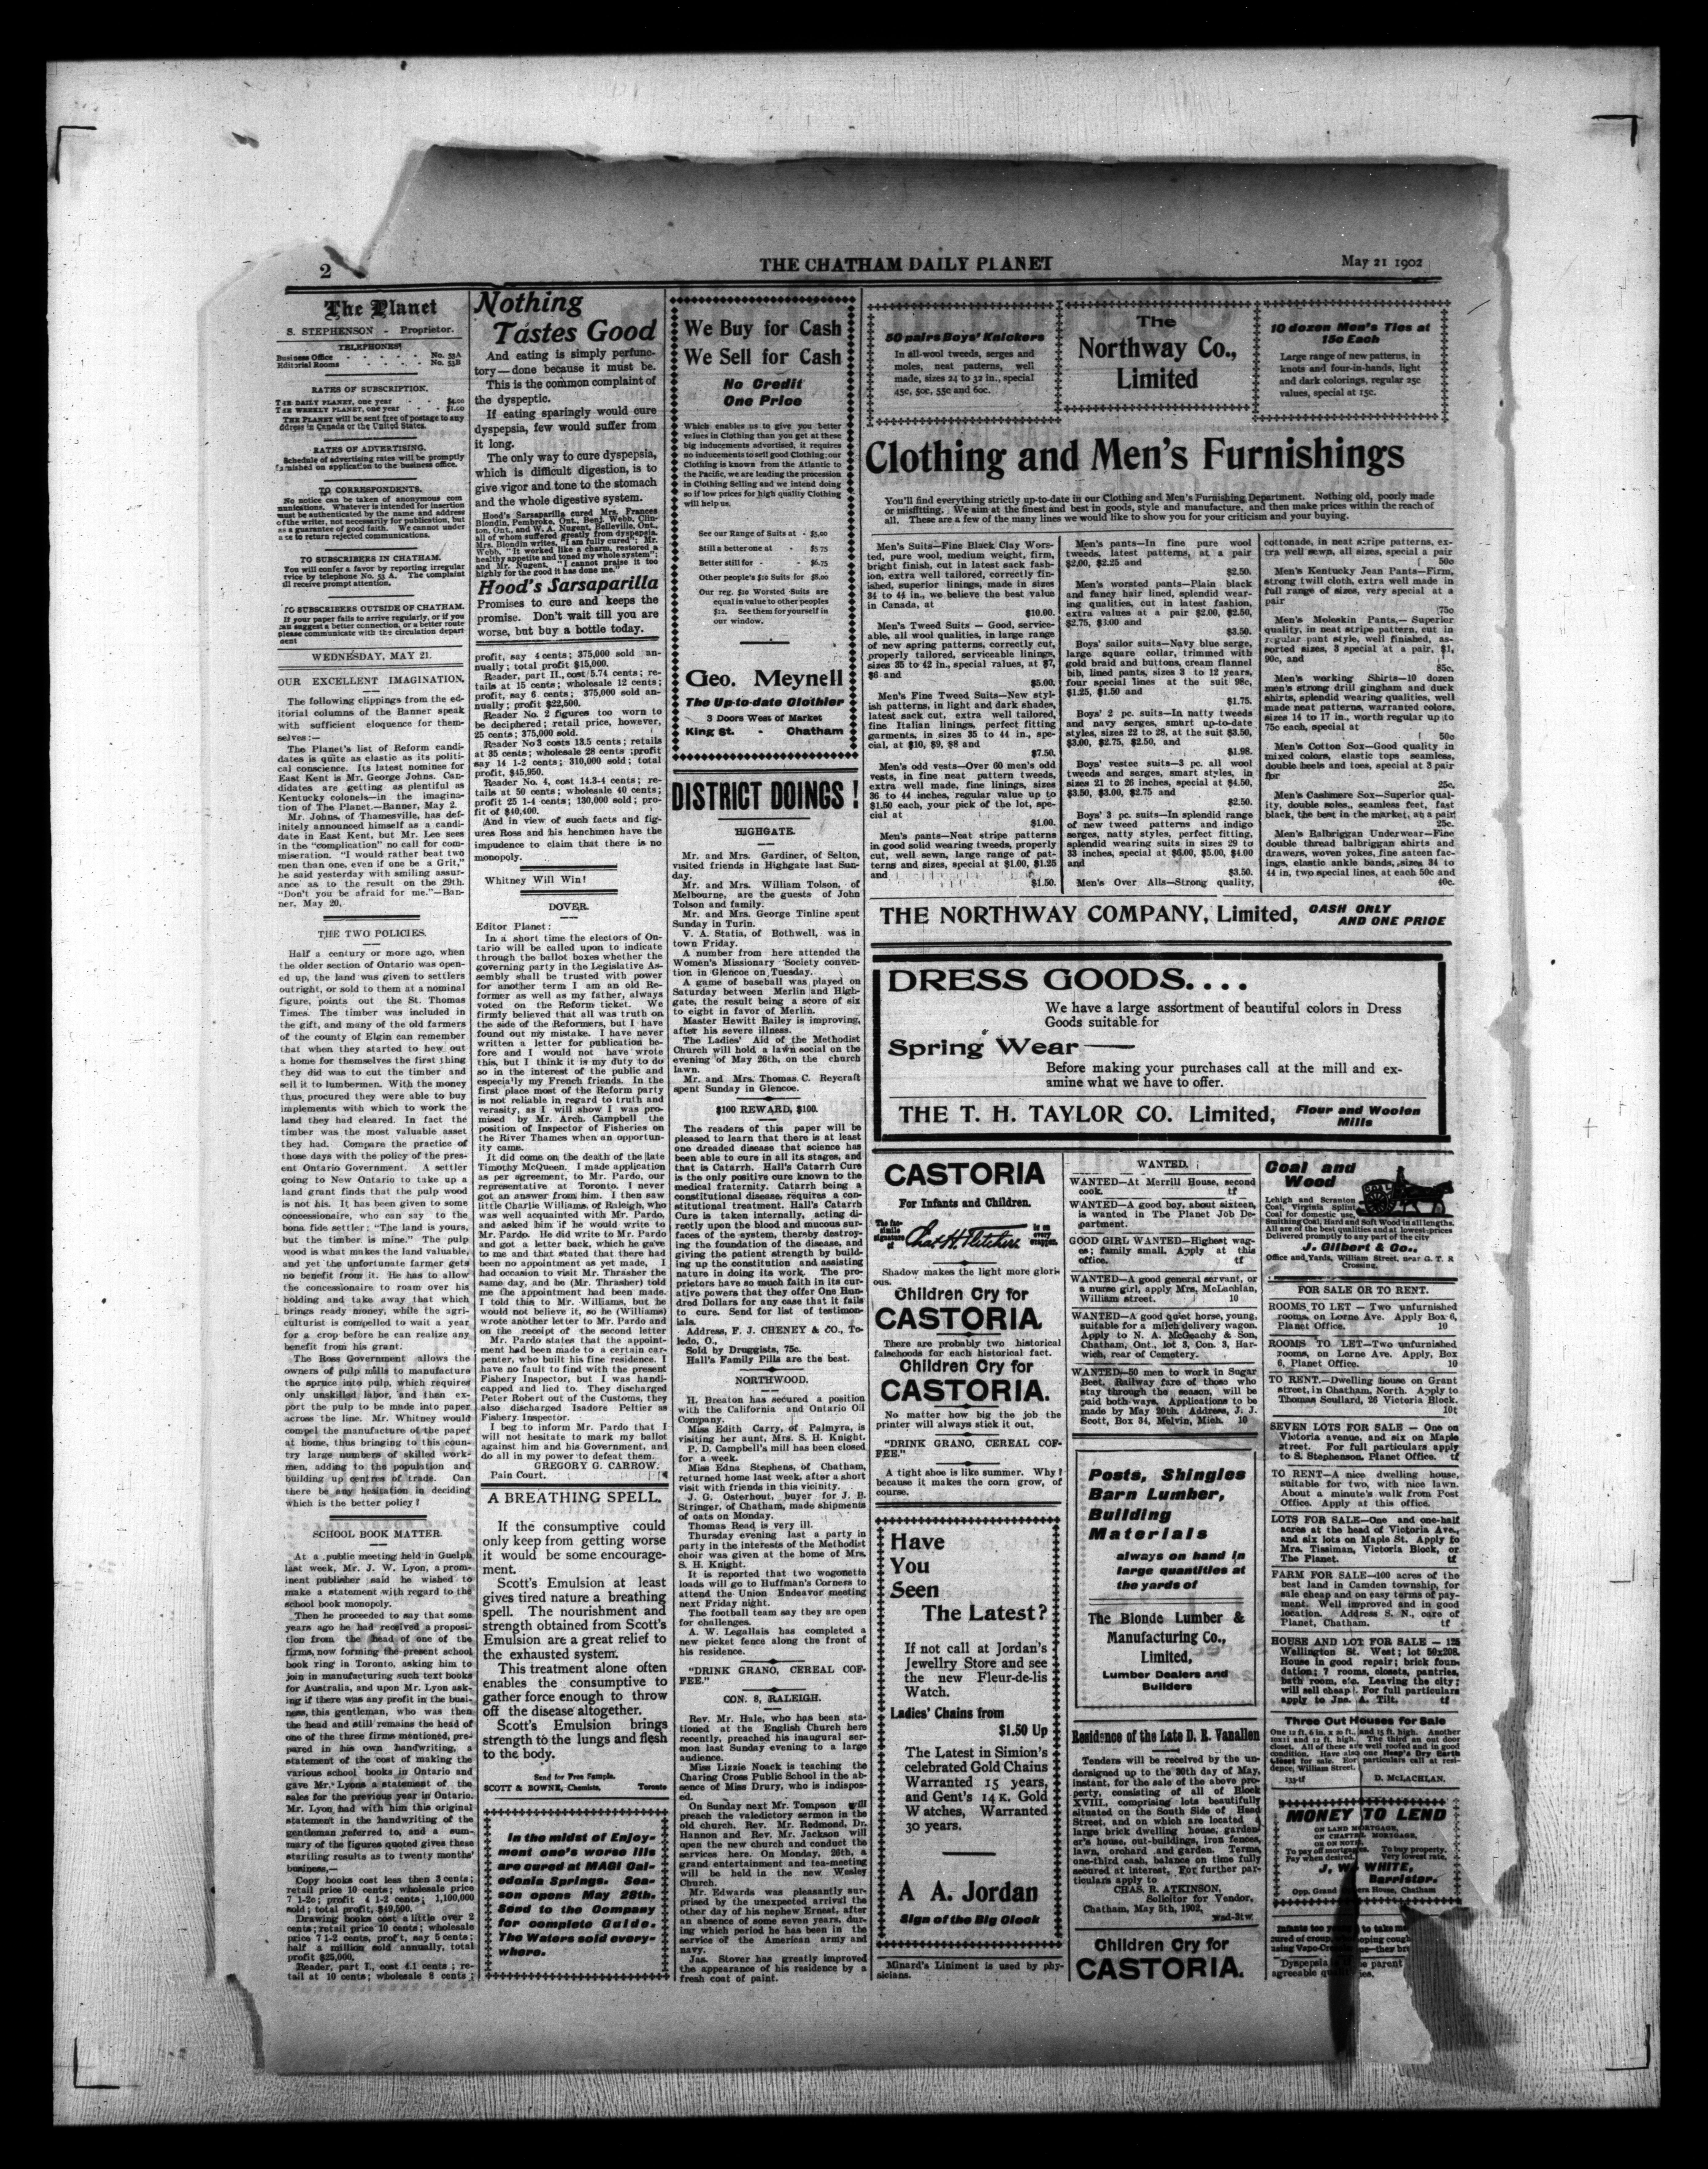 2
THE CHATHAM DAILY PLANET
May 21 1902
The Planet
S. STEPHENSON - Proprietor.
TELEPHONES
Business Office - - - - - No. 53A
Editorial Rooms - - - - No. 53B
RATES OF SUBSCRIPTION.
THE DAILY PLANET, one year - - $4.00
THE WEEKLY PLANET, one year - - $1.00
THE PLANET will be sent free of postage to any
ddress in Canada or the United States.
RATES OF ADVERTISING.
Schedule of advertising rates will be promptly
furnished on application to the business office.
TO CORRESPONDENTS.
No notice can be taken of anonymous com
munications. Whatever is intended for insertion
must be authenticated by the name and address
of the writer, not necessarily for publication, but
as a guarantee of good faith. We cannot under
a te to return rejected communications.
TO SUBSCRIBERS IN CHATHAM.
You will confer a favor by reporting irregular
rvice by telephone No. 53 A. The complaint
ill receive prompt attention.
TO SUBSCRIBERS OUTSIDE OF CHATHAM.
If your paper fails to arrive regularly, or if you
can suggest a better connection, or a better route
please communicate with the circulation depart
ment
WEDNESDAY, MAY 21.
OUR EXCELLENT IMAGINATION.
The following clippings from the ed-
itorial columns of the Banner speak
with sufficient eloquence for them-
selves:—
The Planet's list of Reform candi-
dates is quite as elastic as its politi-
cal conscience. Its latest nominee for
East Kent is Mr. George Johns. Can-
didates are getting as plentiful as
Kentucky colonels—in the imagina-
tion of The Planet.—Banner, May 2.
Mr. Johns, of Thamesville, has def-
initely announced himself as a candi-
date in East Kent, but Mr. Lee sees
in the "complication" no call for com-
miseration. "I would rather beat two
men than one, even if one be a Grit,"
he said yesterday with smiling assur-
ance as to the result on the 29th.
"Don't you be afraid for me."—Ban-
ner, May 20.
THE TWO POLICIES.
Half a century or more ago, when
the older section of Ontario was open-
ed up, the land was given to settlers
outright, or sold to them at a nominal
figure, points out the St. Thomas
Times. The timber was included in
the gift, and many of the old farmers
of the county of Elgin can remember
that when they started to hew out
a home for themselves the first thing
they did was to cut the timber and
sell it to lumbermen. With the money
thus procured they were able to buy
implements with which to work the
land they had cleared. In fact the
timber was the most valuable asset
they had. Compare the practice of
those days with the policy of the pres-
ent Ontario Government. A settler
going to New Ontario to take up a
land grant finds that the pulp wood
is not his. It has been given to some
concessionaire, who can say to the
bona fide settler: "The land is yours,
but the timber is mine." The pulp
wood is what makes the land valuable,
and yet the unfortunate farmer gets
no benefit from it. He has to allow
the concessionaire to roam over his
holding and take away that which
brings ready money, while the agri-
culturist is compelled to wait a year
for a crop before he can realize any
benefit from his grant.
The Ross Government allows the
owners of pulp mills to manufacture
the spruce into pulp, which requires
only unskilled labor, and then ex-
port the pulp to be made into paper
across the line. Mr. Whitney would
compel the manufacture of the paper
at home, thus bringing to this coun-
try large numbers of skilled work-
men, adding to the population and
building up centres of trade. Can
there be any hesitation in deciding
which is the better policy?
SCHOOL BOOK MATTER.
At a public meeting held in Guelph
last week, Mr. J. W. Lyon, a prom-
inent publisher said he wished to
make a statement with regard to the
school book monopoly.
Then he proceeded to say that some
years ago he had received a proposi-
tion from the head of one of the
firms, now forming the present school
book ring in Toronto, asking him to
join in manufacturing such text books
for Australia, and upon Mr. Lyon ask-
ing if there was any profit in the busi-
ness, this gentleman, who was then
the head and still remains the head of
one of the three firms mentioned, pre-
pared in his own handwriting, a
statement of the cost of making the
various school books in Ontario and
gave Mr. Lyons a statement of the
sales for the previous year in Ontario.
Mr. Lyon had with him this original
statement in the handwriting of the
gentleman referred to, and a sum-
mary of the figures quoted gives these
startling results as to twenty months'
business,—
Copy books cost less then 3 cents;
retail price 10 cents; wholesale price
7 1-2c; profit 4 1-2 cents; 1,100,000
sold; total profit, $49,500.
Drawing books cost a little over 2
cents; retail price 10 cents; wholesale
price 7 1-2 cents, profit, say 5 cents;
half a million sold annually, total
profit $25,000.
Reader, part I., cost 4.1 cents; re-
tail at 10 cents; wholesale 8 cents;
Nothing
Tastes Good
And eating is simply perfunc-
tory—done because it must be.
This is the common complaint of
the dyspeptic.
If eating sparingly would cure
dyspepsia, few would suffer from
it long.
The only way to cure dyspepsia,
which is difficult digestion, is to
give vigor and tone to the stomach
and the whole digestive system.
Hood's Sarsaparilla cured Mrs. Frances
Blondin, Pembroke, Ont., Benj. Webb, Clin-
ton, Ont., and W. A. Nugent, Belleville, Ont.,
all of whom suffered greatly from dyspepsia.
Mrs. Blondin writes, "I am fully cured"; Mr.
Webb, "It worked like a charm, restored a
healthy appetite and toned my whole system";
and Mr. Nugent, "I cannot praise it too
highly for the good it has done me."
Hood's Sarsaparilla
Promises to cure and keeps the
promise. Don't wait till you are
worse, but buy a bottle today.
profit, say 4 cents; 375,000 sold an-
nually; total profit $15,000.
Reader, part II., cost 5.74 cents; re-
tails at 15 cents; wholesale 12 cents;
profit, say 6 cents; 375,000 sold an-
nually; profit $22,500.
Reader No. 2 figures too worn to
be deciphered; retail price, however,
25 cents; 375,000 sold.
Reader No 3 costs 13.5 cents; retails
at 35 cents; wholesale 28 cents; profit
say 14 1-2 cents; 310,000 sold; total
profit, $45,950.
Reader No. 4, cost 14.3-4 cents; re-
tails at 50 cents; wholesale 40 cents;
profit 25 1-4 cents; 130,000 sold; pro-
fit of $40,400.
And in view of such facts and fig-
ures Ross and his henchmen have the
impudence to claim that there is no
monopoly.
Whitney Will Win!
DOVER.
Editor Planet:
In a short time the electors of On-
tario will be called upon to indicate
through the ballot boxes whether the
governing party in the Legislative As-
sembly shall be trusted with power
for another term I am an old Re-
former as well as my father, always
voted on the Reform ticket. We
firmly believed that all was truth on
the side of the Reformers, but I have
found out my mistake. I have never
written a letter for publication be-
fore and I would not have wrote
this, but I think it is my duty to do
so in the interest of the public and
especially my French friends. In the
first place most of the Reform party
is not reliable in regard to truth and
verasity, as I will show I was pro-
mised by Mr. Arch. Campbell the
position of Inspector of Fisheries on
the River Thames when an opportun-
ity came.
It did come on the death of the late
Timothy McQueen. I made application
as per agreement, to Mr. Pardo, our
representative at Toronto. I never
got an answer from him. I then saw
little Charlie Williams, of Raleigh, who
was well acquainted with Mr. Pardo,
and asked him if he would write to
Mr. Pardo. He did write to Mr. Pardo
and got a letter back, which he gave
to me and that stated that there had
been no appointment as yet made, I
had occasion to visit Mr. Thrasher the
same day, and he (Mr. Thrasher) told
me the appointment had been made.
I told this to Mr. Williams, but he
would not believe it, so he (Williams)
wrote another letter to Mr. Pardo and
on the receipt of the second letter
Mr. Pardo states that the appoint-
ment had been made to a certain car-
penter, who built his fine residence. I
have no fault to find with the present
Fishery Inspector, but I was handi-
capped and lied to. They discharged
Peter Robert out of the Customs, they
also discharged Isadore Peltier as
Fishery Inspector.
I beg to inform Mr. Pardo that I
will not hesitate to mark my ballot
against him and his Government, and
do all in my power to defeat them.
GREGORY G. CARROW.
Pain Court.
A BREATHING SPELL.
If the consumptive could
only keep from getting worse
it would be some encourage-
ment.
Scott's Emulsion at least
gives tired nature a breathing
spell. The nourishment and
strength obtained from Scott's
Emulsion are a great relief to
the exhausted system.
This treatment alone often
enables the consumptive to
gather force enough to throw
off the disease altogether.
Scott's Emulsion brings
strength to the lungs and flesh
to the body.
Send for Free Sample.
SCOTT & BOWNE, Chemists, Toronto
In the midst of Enjoy-
ment one's worse ills
are cured at MAGI Cal-
edonia Springs. Sea-
son opens May 28th.
Send to the Company
for complete Guide.
The Waters sold every-
where.
We Buy for Cash
We Sell for Cash
No Credit
One Price
Which enables us to give you better
values in Clothing than you get at these
big inducements advertised, it requires
no inducements to sell good Clothing; our
Clothing is known from the Atlantic to
the Pacific, we are leading the procession
in Clothing Selling and we intend doing
so if low prices for high quality Clothing
will help us.
See our Range of Suits at - $5.00
Still a better one at - $5 75
Better still for - - $6.75
Other people's $10 Suits for $8.00
Our reg. $10 Worsted Suits are
equal in value to other peoples
$12. See them for yourself in
our window.
Geo. Meynell
The Up-to-date Clothier
3 Doors West of Market
King St. - Chatham
DISTRICT DOINGS!
HIGHGATE.
Mr. and Mrs. Gardiner, of Selton,
visited friends in Highgate last Sun-
day.
Mr. and Mrs. William Tolson, of
Melbourne, are the guests of John
Tolson and family.
Mr. and Mrs. George Tinline spent
Sunday in Turin.
V. A. Statia, of Bothwell, was in
town Friday.
A number from here attended the
Women's Missionary Society conven-
tion in Glencoe on Tuesday.
A game of baseball was played on
Saturday between Merlin and High-
gate, the result being a score of six
to eight in favor of Merlin.
Master Hewitt Bailey is improving,
after his severe illness.
The Ladies' Aid of the Methodist
Church will hold a lawn social on the
evening of May 26th, on the church
lawn.
Mr. and Mrs. Thomas C. Reycraft
spent Sunday in Glencoe.
$100 REWARD, $100.
The readers of this paper will be
pleased to learn that there is at least
one dreaded disease that science has
been able to cure in all its stages, and
that is Catarrh. Hall's Catarrh Cure
is the only positive cure known to the
medical fraternity. Catarrh being a
constitutional disease, requires a con-
stitutional treatment. Hall's Catarrh
Cure is taken internally, acting di-
rectly upon the blood and mucous sur-
faces of the system, thereby destroy-
ing the foundation of the disease, and
giving the patient strength by build-
ing up the constitution and assisting
nature in doing its work. The pro-
prietors have so much faith in its cur-
ative powers that they offer One Hun-
dred Dollars for any case that it fails
to cure. Send for list of testimon-
ials.
Address, F. J. CHENEY & CO., To-
ledo, O.,
Sold by Druggists, 75c.
Hall's Family Pills are the best.
NORTHWOOD.
H. Breaton has secured a position
with the California and Ontario Oil
Company.
Miss Edith Carry, of Palmyra, is
visiting her aunt, Mrs. S. H. Knight.
P. D. Campbell's mill has been closed
for a week.
Miss Edna Stephens, of Chatham,
returned home last week, after a short
visit with friends in this vicinity.
J. G. Osterhout, buyer for J. B.
Stringer, of Chatham, made shipments
of oats on Monday.
Thomas Read is very ill.
Thursday evening last a party in
party in the interests of the Methodist
choir was given at the home of Mrs.
S. H. Knight.
It is reported that two wogonette
loads will go to Huffman's Corners to
attend the Union Endeavor meeting
next Friday night.
The football team say they are open
for challenges.
A. W. Legallais has completed a
new picket fence along the front of
his residence.
"DRINK GRANO, CEREAL COF-
FEE."
CON. 8, RALEIGH.
Rev. Mr. Hale, who has been sta-
tioned at the English Church here
recently, preached his inaugural ser-
mon last Sunday evening to a large
audience.
Miss Lizzie Noack is teaching the
Charing Cross Public School in the ab-
sence of Miss Drury, who is indispos-
ed.
On Sunday next Mr. Tompson will
preach the valedictory sermon in the
old church. Rev. Mr. Redmond, Dr.
Hannon and Rev. Mr. Jackson will
open the new church and conduct the
services here. On Monday, 26th, a
grand entertainment and tea-meeting
will be held in the new Wesley
Church.
Mr. Edwards was pleasantly sur-
prised by the unexpected arrival the
other day of his nephew Ernest, after
an absence of some seven years, dur-
ing which period he has been in the
service of the American army and
navy.
Jas. Stover has greatly improved
the appearance of his residence by a
fresh coat of paint.
50 pairs Boys' Knickers
In all-wool tweeds, serges and
moles, neat patterns, well
made, sizes 24 to 32 in., special
45c, 50c, 55c and 60c.
The
Northway Co.,
Limited
10 dozen Men's Ties at
15c Each
Large range of new patterns, in
knots and four-in-hands, light
and dark colorings, regular 25c
values, special at 15c.
Clothing and Men's Furnishings
You'll find everything strictly up-to-date in our Clothing and Men's Furnishing Department. Nothing old, poorly made
or misfitting. We aim at the finest and best in goods, style and manufacture, and then make prices within the reach of
all. These are a few of the many lines we would like to show you for your criticism and your buying.
Men's Suits—Fine Black Clay Wors-
ted, pure wool, medium weight, firm,
bright finish, cut in latest sack fash-
ion, extra well tailored, correctly fin-
ished, superior linings, made in sizes
34 to 44 in., we believe the best value
in Canada, at
$10.00.
Men's Tweed Suits — Good, service-
able, all wool qualities, in large range
of new spring patterns, correctly cut,
properly tailored, serviceable linings,
sizes 35 to 42 in., special values, at $7,
$6 and
$5.00.
Men's Fine Tweed Suits—New styl-
ish patterns, in light and dark shades,
latest sack cut, extra well tailored,
fine Italian linings, perfect fitting
garments, in sizes 35 to 44 in., spe-
cial, at $10, $9, $8 and
$7.50.
Men's odd vests—Over 60 men's odd
vests, in fine neat pattern tweeds,
extra well made, fine linings, sizes
36 to 44 inches, regular value up to
$1.50 each, your pick of the lot, spe-
cial at
$1.00.
Men's pants—Neat stripe patterns
in good solid wearing tweeds, properly
cut, well sewn, large range of pat-
terns and sizes, special at $1.00, $1.25
and
$1.50.
Men's pants—In fine pure wool
tweeds, latest patterns, at a pair
$2.00, $2.25 and
$2.50.
Men's worsted pants—Plain black
and fancy hair lined, splendid wear-
ing qualities, cut in latest fashion,
extra values at a pair $2.00, $2.50,
$2.75, $3.00 and
$3.50.
Boys' sailor suits—Navy blue serge,
large square collar, trimmed with
gold braid and buttons, cream flannel
bib, lined pants, sizes 3 to 12 years,
four special lines at the suit 98c,
$1.25, $1.50 and
$1.75.
Boys' 2 pc. suits—In natty tweeds
and navy serges, smart up-to-date
styles, sizes 22 to 28, at the suit $3.50,
$3.00, $2.75, $2.50, and
$1.98.
Boys' vestee suits—3 pc. all wool
tweeds and serges, smart styles, in
sizes 21 to 26 inches, special at $4.50,
$3.50, $3.00, $2.75 and
$2.50.
Boys' 3 pc. suits—In splendid range
of new tweed patterns and indigo
serges, natty styles, perfect fitting,
splendid wearing suits in sizes 29 to
33 inches, special at $6.00, $5.00, $4.00
and
$3.50.
Men's Over Alls—Strong quality,
cottonade, in neat stripe patterns, ex-
tra well sewn, all sizes, special a pair
50c
Men's Kentucky Jean Pants—Firm,
strong twill cloth, extra well made in
full range of sizes, very special at a
pair
75c
Men's Moleskin Pants,— Superior
quality, in neat stripe pattern, cut in
regular pant style, well finished, as-
sorted sizes, 3 special at a pair, $1,
90c, and
85c.
Men's working Shirts—10 dozen
men's strong drill gingham and duck
shirts, splendid wearing qualities, well
made neat patterns, warranted colors,
sizes 14 to 17 in., worth regular up to
75c each, special at
50c
Men's Cotton Sox—Good quality in
mixed colors, elastic tops seamless,
double heels and toes, special at 3 pair
for
25c.
Men's Cashmere Sox—Superior qual-
ity, double soles, seamless feet, fast
black, the best in the market, at a pair
25c.
Men's Balbriggan Underwear—Fine
double thread balbriggan shirts and
drawers, woven yokes, fine sateen fac-
ings, elastic ankle bands, sizes 34 to
44 in., two special lines, at each 50c and
40c.
THE NORTHWAY COMPANY, Limited, CASH ONLY
AND ONE PRICE
DRESS GOODS....
We have a large assortment of beautiful colors in Dress
Goods suitable for
Spring Wear—
Before making your purchases call at the mill and ex-
amine what we have to offer.
THE T. H. TAYLOR CO. Limited, Flour and Woolen
Mills
CASTORIA
For Infants and Children.
The fac-
simile
signature
of
Chas. H. Fletcher
is on
every
wrapper.
Shadow makes the light more glori-
ous.
Children Cry for
CASTORIA.
There are probably two historical
falsehoods for each historical fact.
Children Cry for
CASTORIA.
No matter how big the job the
printer will always stick it out.
"DRINK GRANO, CEREAL COF-
FEE."
A tight shoe is like summer. Why?
because it makes the corn grow, of
course.
Have
You
Seen
The Latest?
If not call at Jordan's
Jewellry Store and see
the new Fleur-de-lis
Watch.
Ladies' Chains from
$1.50 Up
The Latest in Simion's
celebrated Gold Chains
Warranted 15 years,
and Gent's 14 K. Gold
Watches, Warranted
30 years.
A A. Jordan
Sign of the Big Clock
Minard's Liniment is used by phy-
sicians.
WANTED.
WANTED—At Merrill House, second
cook. tf
WANTED—A good boy, about sixteen,
is wanted in The Planet Job De-
partment.
GOOD GIRL WANTED—Highest wag-
es; family small. Apply at this
office. tf
WANTED—A good general servant, or
a nurse girl, apply Mrs. McLachlan,
William street. 10
WANTED—A good quiet horse, young,
suitable for a milch delivery wagon.
Apply to N. A. McGeachy & Son,
Chatham, Ont., lot 3, Con. 3, Har-
wich, rear of Cemetery.
WANTED—50 men to work in Sugar
Beet. Railway fare of those who
stay through the season, will be
paid both ways. Applications to be
made by May 20th. Address, J. J.
Scott, Box 34, Melvin, Mich. 10
Posts, Shingles
Barn Lumber,
Building
Materials
always on hand in
large quantities at
the yards of
The Blonde Lumber &
Manufacturing Co.,
Limited,
Lumber Dealers and
Builders
Residence of the Late D. R. Vanallen
Tenders will be received by the un-
dersigned up to the 30th day of May,
instant, for the sale of the above pro-
perty, consisting of all of Block
XVIII. comprising lots beautifully
situated on the South Side of Head
Street, and on which are located a
large brick dwelling house, garden-
er's house, out-buildings, iron fences,
lawn, orchard and garden. Terms,
one-third cash, balance on time fully
secured at interest. For further par-
ticulars apply to
CHAS. R. ATKINSON,
Solicitor for Vendor.
Chatham, May 5th, 1902,
wsd-3tw.
Children Cry for
CASTORIA.
Coal and
Wood
Lehigh and Scranton
Coal, Virginia splint
Coal for domestic use,
Smithing Coal, Hard and Soft Wood in all lengths.
All are of the best qualities and at lowest prices
Delivered promptly to any part of the city
J. Gilbert & Co.,
Office and Yards, William Street, near G. T. R
Crossing.
FOR SALE OR TO RENT.
ROOMS TO LET — Two unfurnished
rooms, on Lorne Ave. Apply Box 6,
Planet Office. 10
ROOMS TO LET—Two unfurnished
rooms, on Lorne Ave. Apply, Box
6, Planet Office. 10
TO RENT.—Dwelling house on Grant
street, in Chatham, North. Apply to
Thomas Soullard, 26 Victoria Block.
10t
SEVEN LOTS FOR SALE — One on
Victoria avenue, and six on Maple
street. For full particulars apply
to S. Stephenson, Planet Office. tf
TO RENT—A nice dwelling house,
suitable for two, with nice lawn.
About a minute's walk from Post
Office. Apply at this office.
LOTS FOR SALE—One and one-half
acres at the head of Victoria Ave.,
and six lots on Maple St. Apply to
Mrs. Tissiman, Victoria Block, or
The Planet. tf
FARM FOR SALE—100 acres of the
best land in Camden township, for
sale cheap and on easy terms of pay-
ment. Well improved and in good
location. Address S. N., care of
Planet, Chatham. tf
HOUSE AND LOT FOR SALE — 125
Wellington St. West; lot 50x208.
House in good repair; brick foun-
dation; 7 rooms, closets, pantries,
bath room, etc. Leaving the city;
will sell cheap. For full particulars
apply to Jas. A. Tilt. tf
Three Out Houses for Sale
One 12 ft. 6 in. x 20 ft., and 15 ft. high. Another
10x11 and 12 ft. high. The third an out door
closet. All of these are well roofed and in good
condition. Have also one Heap's Dry Earth
Closet for sale. For particulars call at resi-
dence, William Street.
133-tf D. McLACHLAN.
MONEY TO LEND
ON LAND MORTGAGE,
ON CHATTEL MORTGAGE,
OR ON NOTE.
To pay off mortgages. To buy property.
Pay when desired. Very lowest rate.
J. W. WHITE,
Barrister.
Opp. Grand Opera House, Chatham
Infants too to take me
cured of croup, oping cough
using Vapo-Cre ne—they bre
Dyspepsia is the parent
agreeable qu